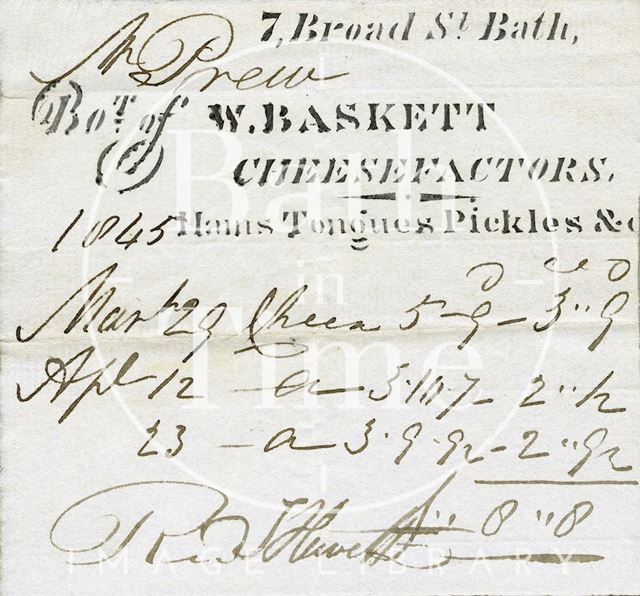 7, Broad St. Bath,
Mr Prew
Bot. of W. BASKETT
CHEESEFACTORS.
1845 Hams Tongues Pickles &c
March 29 Cheese 5 - 9 - 3 " 9
Apl 12 - a - 3 · 10 · 7 - 2 "
23 - a - 3 · 9 · 9½ - 2 " 9½
8 " 8
Bath in Time
IMAGE LIBRARY